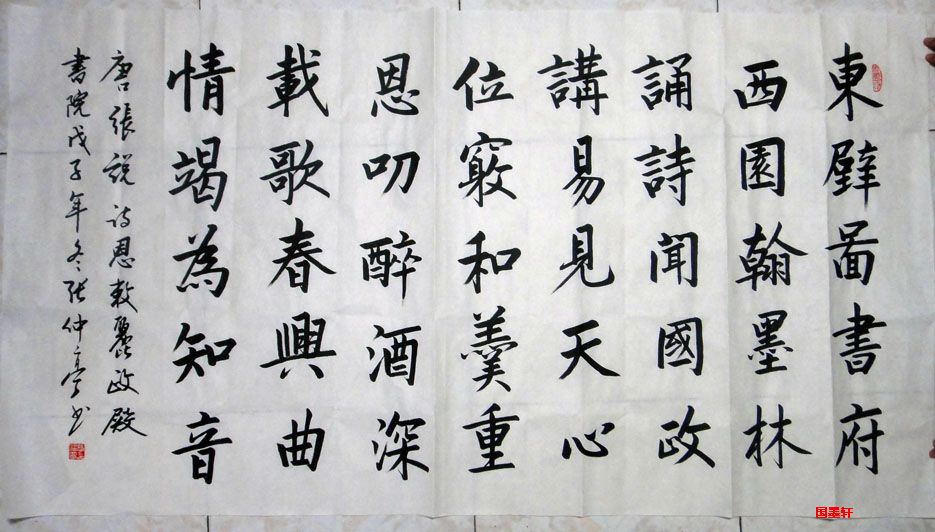 東壁圖書府
西園翰墨林
誦詩聞國政
講易見天心
位竊和羹重
恩叨醉酒深
載歌春興曲
情竭為知音
唐張説诗恩敕麗政殿
書院戊子年冬張仲亭书
国墨轩